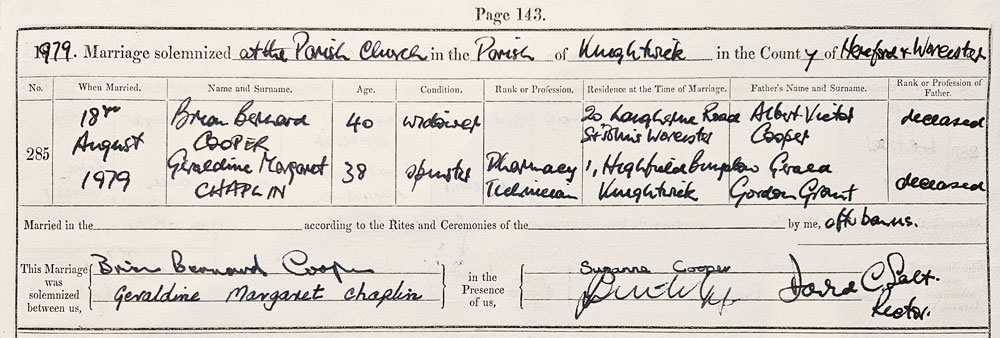 Page 143.
1979. Marriage solemnized at the Parish Church in the Parish of Knightwick in the County of Hereford & Worcester
No. When Married. Name and Surname. Age. Condition. Rank or Profession. Residence at the Time of Marriage. Father's Name and Surname. Rank or Profession of Father.
285
18th August 1979
Brian Bernard COOPER
40
widower
St Johns Worcester
Albert Victor Cooper
deceased
Geraldine Margaret CHAPLIN
38
spinster
Pharmacy Technician
1, Highfield Bungalow Knightwick
Gerald Gordon Grant
deceased
Married in the according to the Rites and Ceremonies of the by me, after banns.
This Marriage was solemnized between us,
Brian Bernard Cooper
Geraldine Margaret Chaplin
in the Presence of us,
Suzanne Cooper
David C Salt.
Rector.